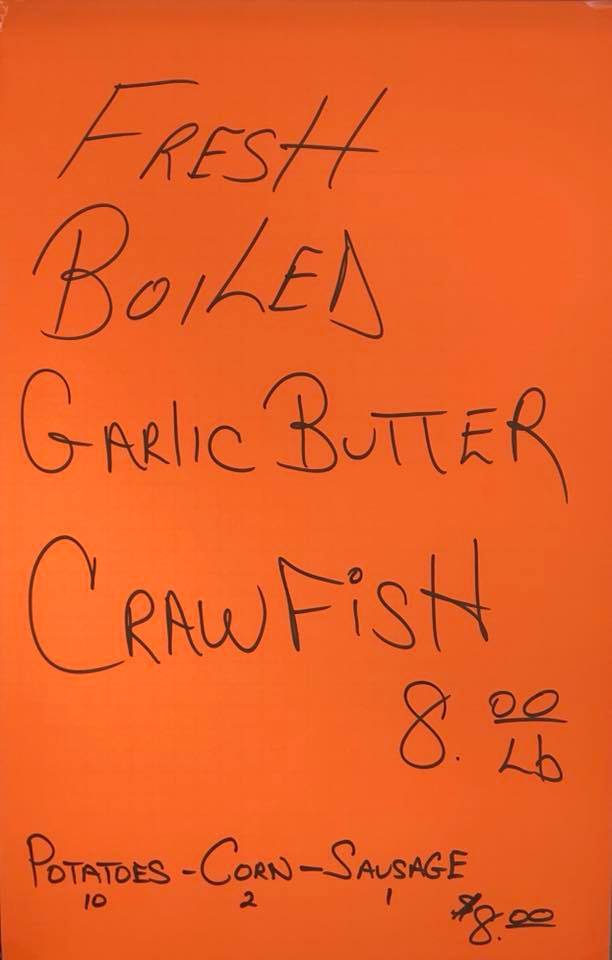 FRESH
BOILED
GARLIC BUTTER
CRAWFiSH
8. 00
Lb
POTATOES - CORN - SAUSAGE
10 2 1
$8.00